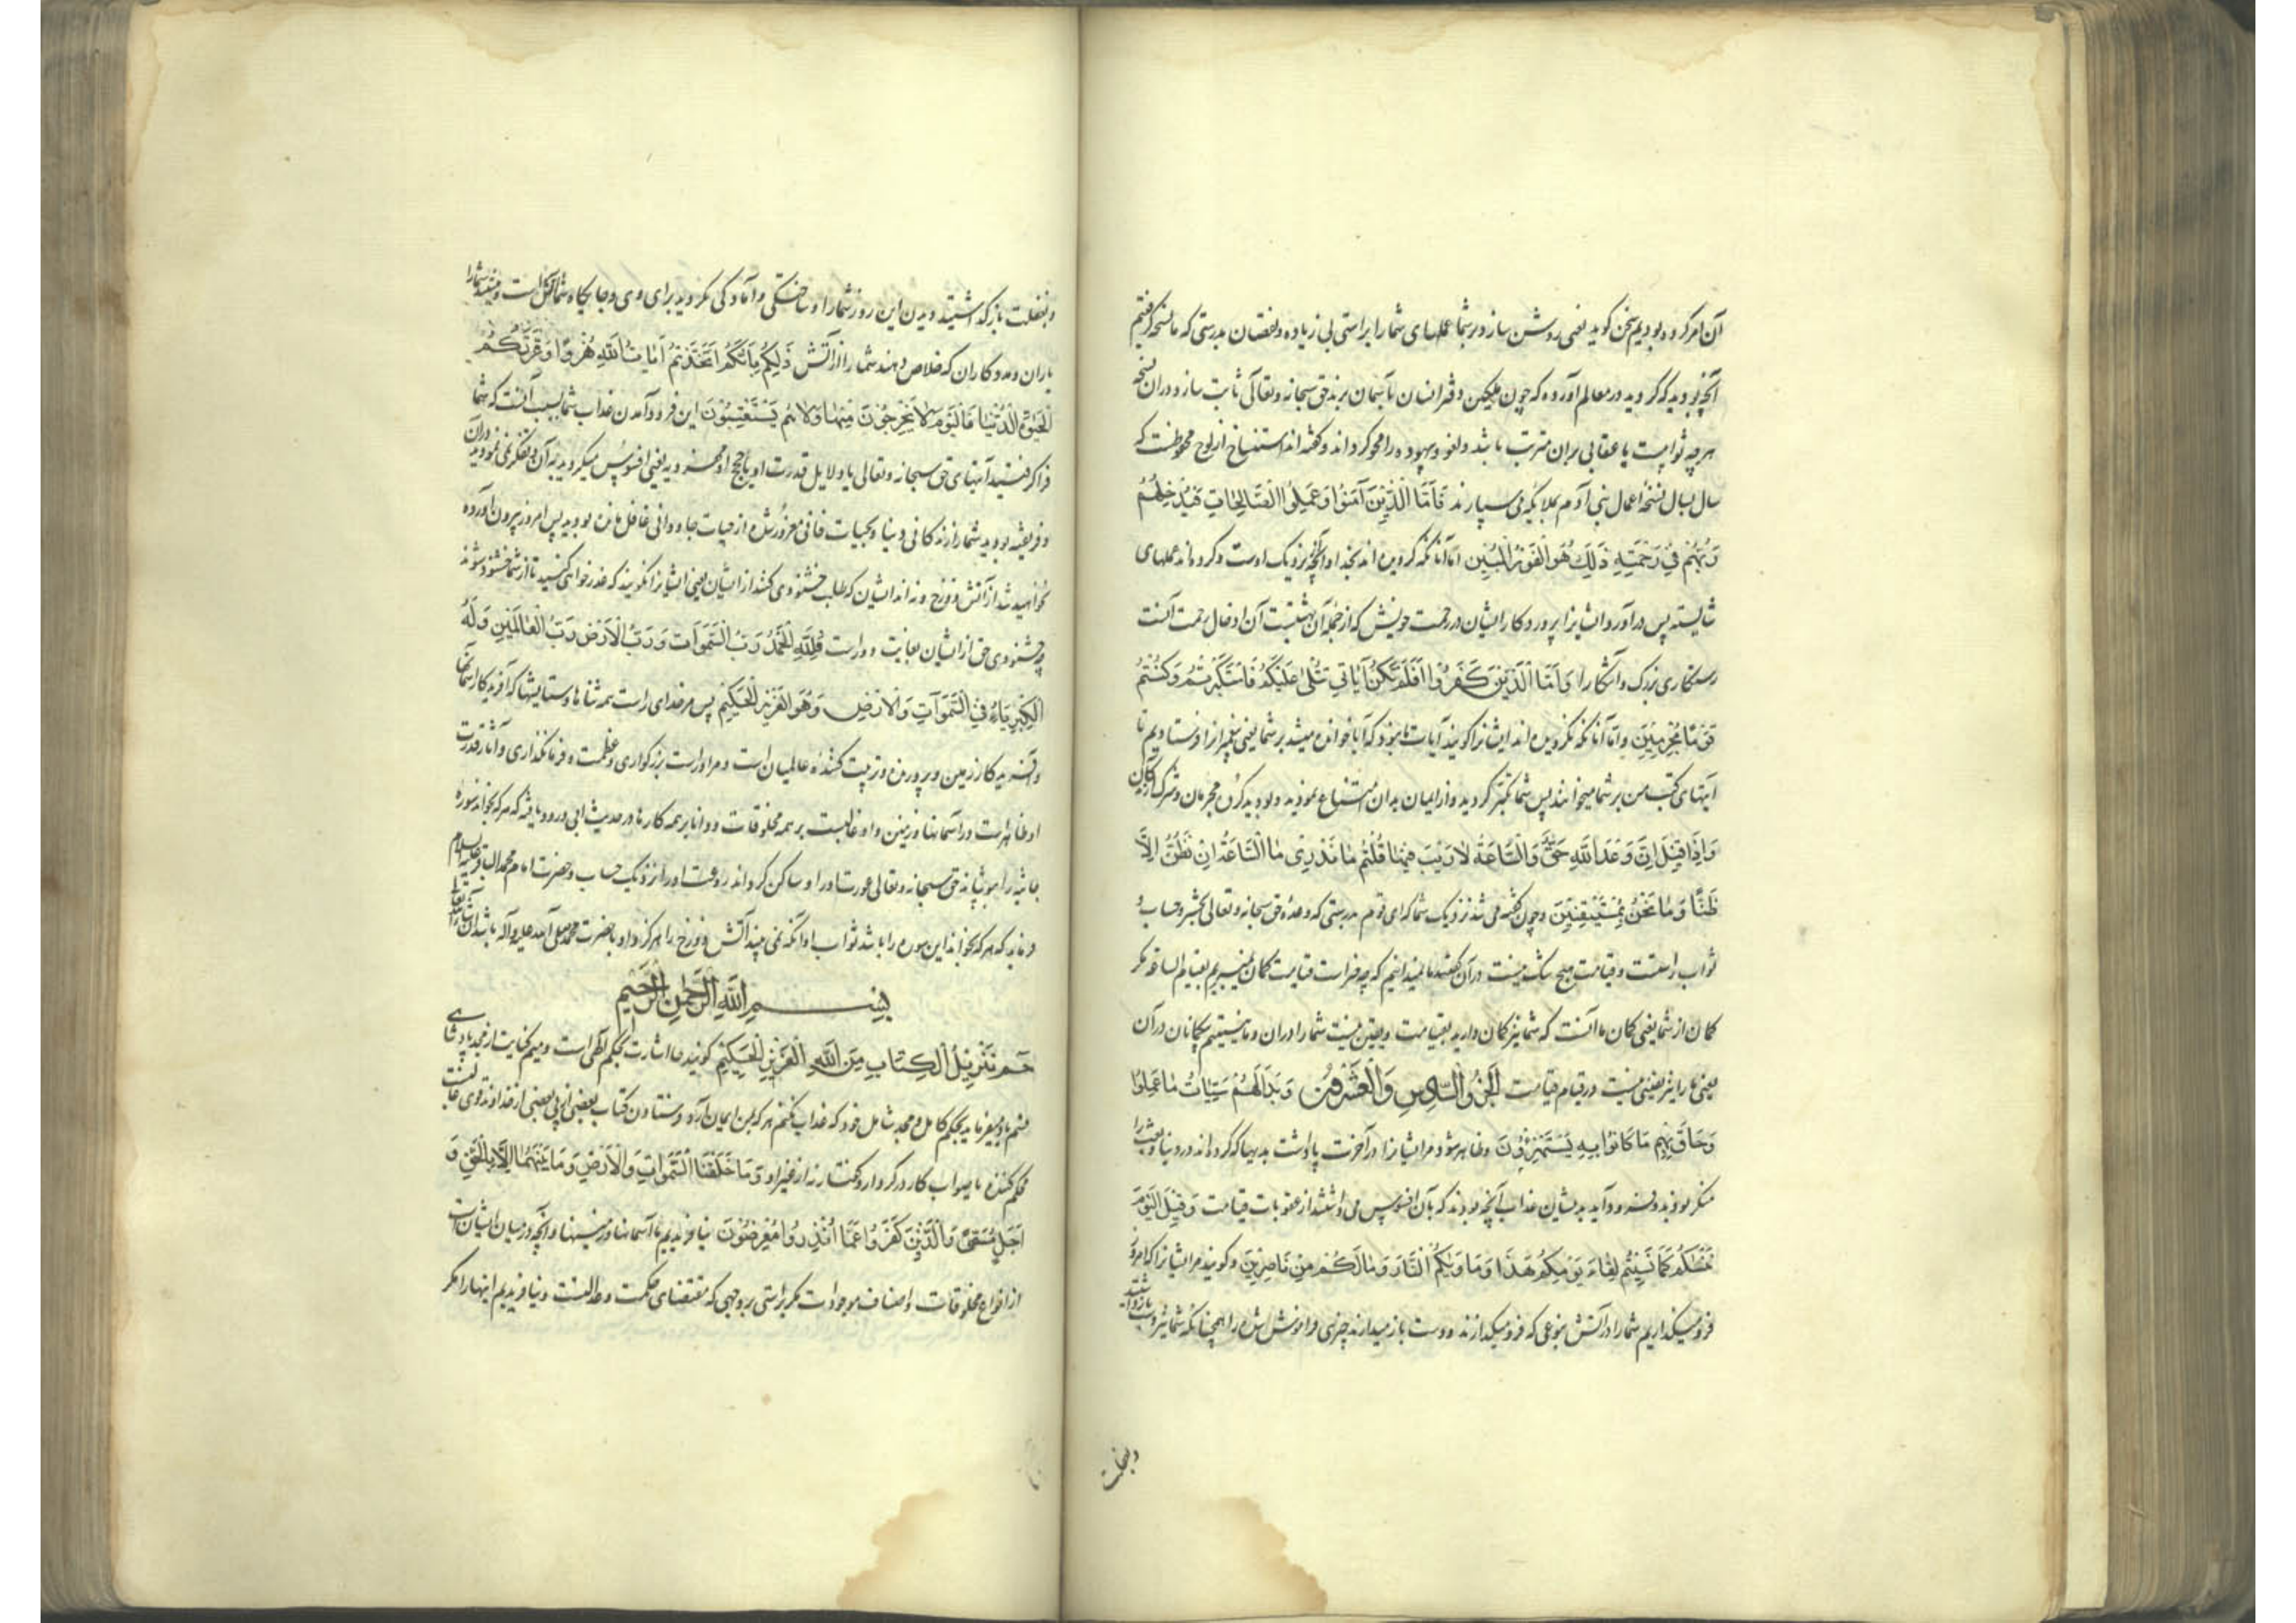 آن امر کرده بودیم سخن کوید یعنی روشن سازد بر شما عملهای شما را براستی بی زیاده و نقصان بدرستی که ما نسخه کرفتیم
آنچه بودید که میکردید در معالم آورده که چون ملکین دفتر انسان بآسمان برند حق سبحانه و تعالی ثابت سازد در آن نسخه
هر چه ثوابست یا عقابی بران مترتب باشد و لغو و بیهوده را محو کرداند و کفته اند استنساخ از لوح محفوظست که
سال بسال نسخهٔ اعمال بنی آدم بملایکه می سپارند فَاَمَّا الَّذِیْنَ آمَنُوْا وَعَمِلُوا الصَّالِحَاتِ فَیُدْخِلُهُمْ
رَبُّهُمْ فِیْ رَحْمَتِهِ ذَلِكَ هُوَ الْفَوْزُ الْمُبِیْن اما آنانکه کرویده اند بخدا و آنچه نزدیک اوست و کرده اند عملهای
شایسته پس درآورد ایشانرا پروردکار ایشان در رحمت خویش که از جمله آن بهشتست آن ادخال رحمت آنست
رستکاری بزرک و آشکارا وَاَمَّا الَّذِیْنَ كَفَرُوْا اَفَلَمْ تَكُنْ آیَاتِیْ تُتْلَى عَلَیْكُمْ فَاسْتَكْبَرْتُمْ وَكُنْتُمْ
قَوْمًا مُجْرِمِیْنَ و اما آنانکه نکرویده اند ایشانرا کویند آیا نبود که آیا خوانده میشد بر شما یعنی پیغمبرانرا فرستادیم تا
آیتهای کتب من بر شما میخوانند پس شما تکبر کردید و از ایمان بدان امتناع نمودید و بودید کروه مجرمان و مشرکان
وَاِذَا قِیْلَ اِنَّ وَعْدَ اللَّهِ حَقٌّ وَالسَّاعَةُ لَا رَیْبَ فِیْهَا قُلْتُمْ مَا نَدْرِیْ مَا السَّاعَةُ اِنْ نَظُنُّ اِلَّا
ظَنًّا وَمَا نَحْنُ بِمُسْتَیْقِنِیْنَ و چون کفته می شد نزدیک شما که ای قوم بدرستی که وعدهٔ حق سبحانه و تعالی بحشر و حساب و
ثواب راستست و قیامت هیچ شک نیست در آن کفتید ما نمیدانیم که چه چیز است قیامت کمان نمیبریم بقیام الساعه مکر
کمان از شما یعنی کمان ما آنست که شما نیز کمان دارید بقیامت و یقین نیست شما را در ان و ما نیستیم بیکمانان در آن
یعنی ما را نیز یقینی نیست در قیام قیامت الْجُزْوُ السَّادِسُ وَالْعِشْرُوْنَ وَبَدَا لَهُمْ سَیِّئَاتُ مَا عَمِلُوا
وَحَاقَ بِهِمْ مَا كَانُوْا بِهِ یَسْتَهْزِؤُنَ و ظاهر شود مر ایشانرا در آخرت پاداشت بدیهاکه کرده اند در دنیا و بعث را
منکر بودند و فرود آید بدیشان عذاب آنچه بودند که بآن افسوس می داشتند از عقوبات قیامت وَقِیْلَ الْیَوْمَ
نَنْسَاكُمْ كَمَا نَسِیْتُمْ لِقَاءَ یَوْمِكُمْ هَذَا وَمَاْوَیكُمُ النَّارُ وَمَا لَكُمْ مِنْ نَاصِرِیْنَ و کویند مر ایشانرا که امروز
فرو میکذاریم شما را در آتش بنوعی که فرو میکذارند و دست باز میدارند چیزی فراموش شده را همچنانکه شما نیز دست بازداشتید
وبغفلت
وبغفلت بازکذاشتید دیدن این روز شما را و ساختکی و آمادکی نکردید برای وی و جایکاه شما آتش است و نیستند شما را
یاران و مددکاران که خلاص دهند شما را از آتش ذَلِكُمْ بِاَنَّكُمُ اتَّخَذْتُمْ آیَاتِ اللَّهِ هُزُوًا وَغَرَّتْكُمُ
الْحَیَوةُ الدُّنْیَا فَالْیَوْمَ لَا یُخْرَجُوْنَ مِنْهَا وَلَا هُمْ یُسْتَعْتَبُوْنَ این فرود آمدن عذاب شما بسبب آنست که شما
فراکرفتید آیتهای حق سبحانه و تعالی یا دلایل قدرت او یا حجج او مهزو به یعنی افسوس میکردید بآن و تفکر نمی نمودید دران
و فریفته بودید شما را زندکانی دنیا و بحیات فانی مغرور شده از حیات جاودانی غافل ماندید بودید پس امروز بیرون آورده
نخواهید شد از آتش دوزخ و نه اند ایشان که طلب خشنودی کنند از ایشان یعنی ایشانرا نکویند که عذرخواهی کنید تا از شما خشنود شوند
چه خشنودی حق از ایشان بغایت دور است فَلِلَّهِ الْحَمْدُ رَبِّ السَّمَوَات وَرَبِّ الْاَرْضِ رَبِّ الْعَالَمِیْنِ وَلَهُ
الْكِبْرِیَاءُ فِیْ السَّمَوَاتِ وَالْاَرْضِ وَهُوَ الْعَزِیْزُ الْحَكِیْم پس مر خدای راست همه ثناها و ستایشها که آفریدکار آسمانها
و آفریدکار زمین و پرورنده و تربیت کنندهٔ عالمیان است و مر او راست بزرکواری و عظمت و فرمانکذاری و آثار قدرت
او ظاهر است در آسمانها و زمین و او غالبست بر همه مخلوقات و دانا بر همه کارها در حدیث ابی درود یافته که هر که بخواند سورهٔ
جاثیه را بپوشاند حق سبحانه و تعالی عورت او را و ساکن کرداند روعت او را نزدیک حساب و حضرت امام محمد الباقر علیه السلام
فرماید که هر که بخواند این سوره را باشد ثواب او آنکه نمی بیند آتش دوزخ را هرکز و او با حضرت محمد صلی الله علیه و آله باشد ان شاء الله تعالی
بِسْمِ اللَّهِ الرَّحْمٰنِ الرَّحِیْمِ
حٰم تَنْزِیْلُ الْكِتَابِ مِنَ اللَّهِ الْعَزِیْزِ الْحَكِیْمِ کویند حا اشارت بحکم الهی است و میم کنایت از مجد پادشاهی
قسم یاد میفرماید بحکم کامل و مجد شامل خود که عذاب نکنم هر که بمن ایمان آرد و فرستادن کتاب بعضی از پی بعضی از خداوند قوی غالبست
حکم کننده بصواب کار در کردار و کفتار نه از غیر او وَمَا خَلَقْنَا السَّمَوَاتِ وَالْاَرْضَ وَمَا بَیْنَهُمَا اِلَّا بِالْحَقِّ وَ
اَجَلٍ مُسَمًّى وَالَّذِیْنَ كَفَرُوْا عَمَّا اُنْذِرُوا مُعْرِضُوْنَ نیافریدیم ما آسمانها و زمینها و آنچه در میان ایشان است
از انواع مخلوقات و اصناف موجودات مکر براستی بر وجهی که مقتضای حکمت و عدالتست و نیافریدیم اینها را مکر